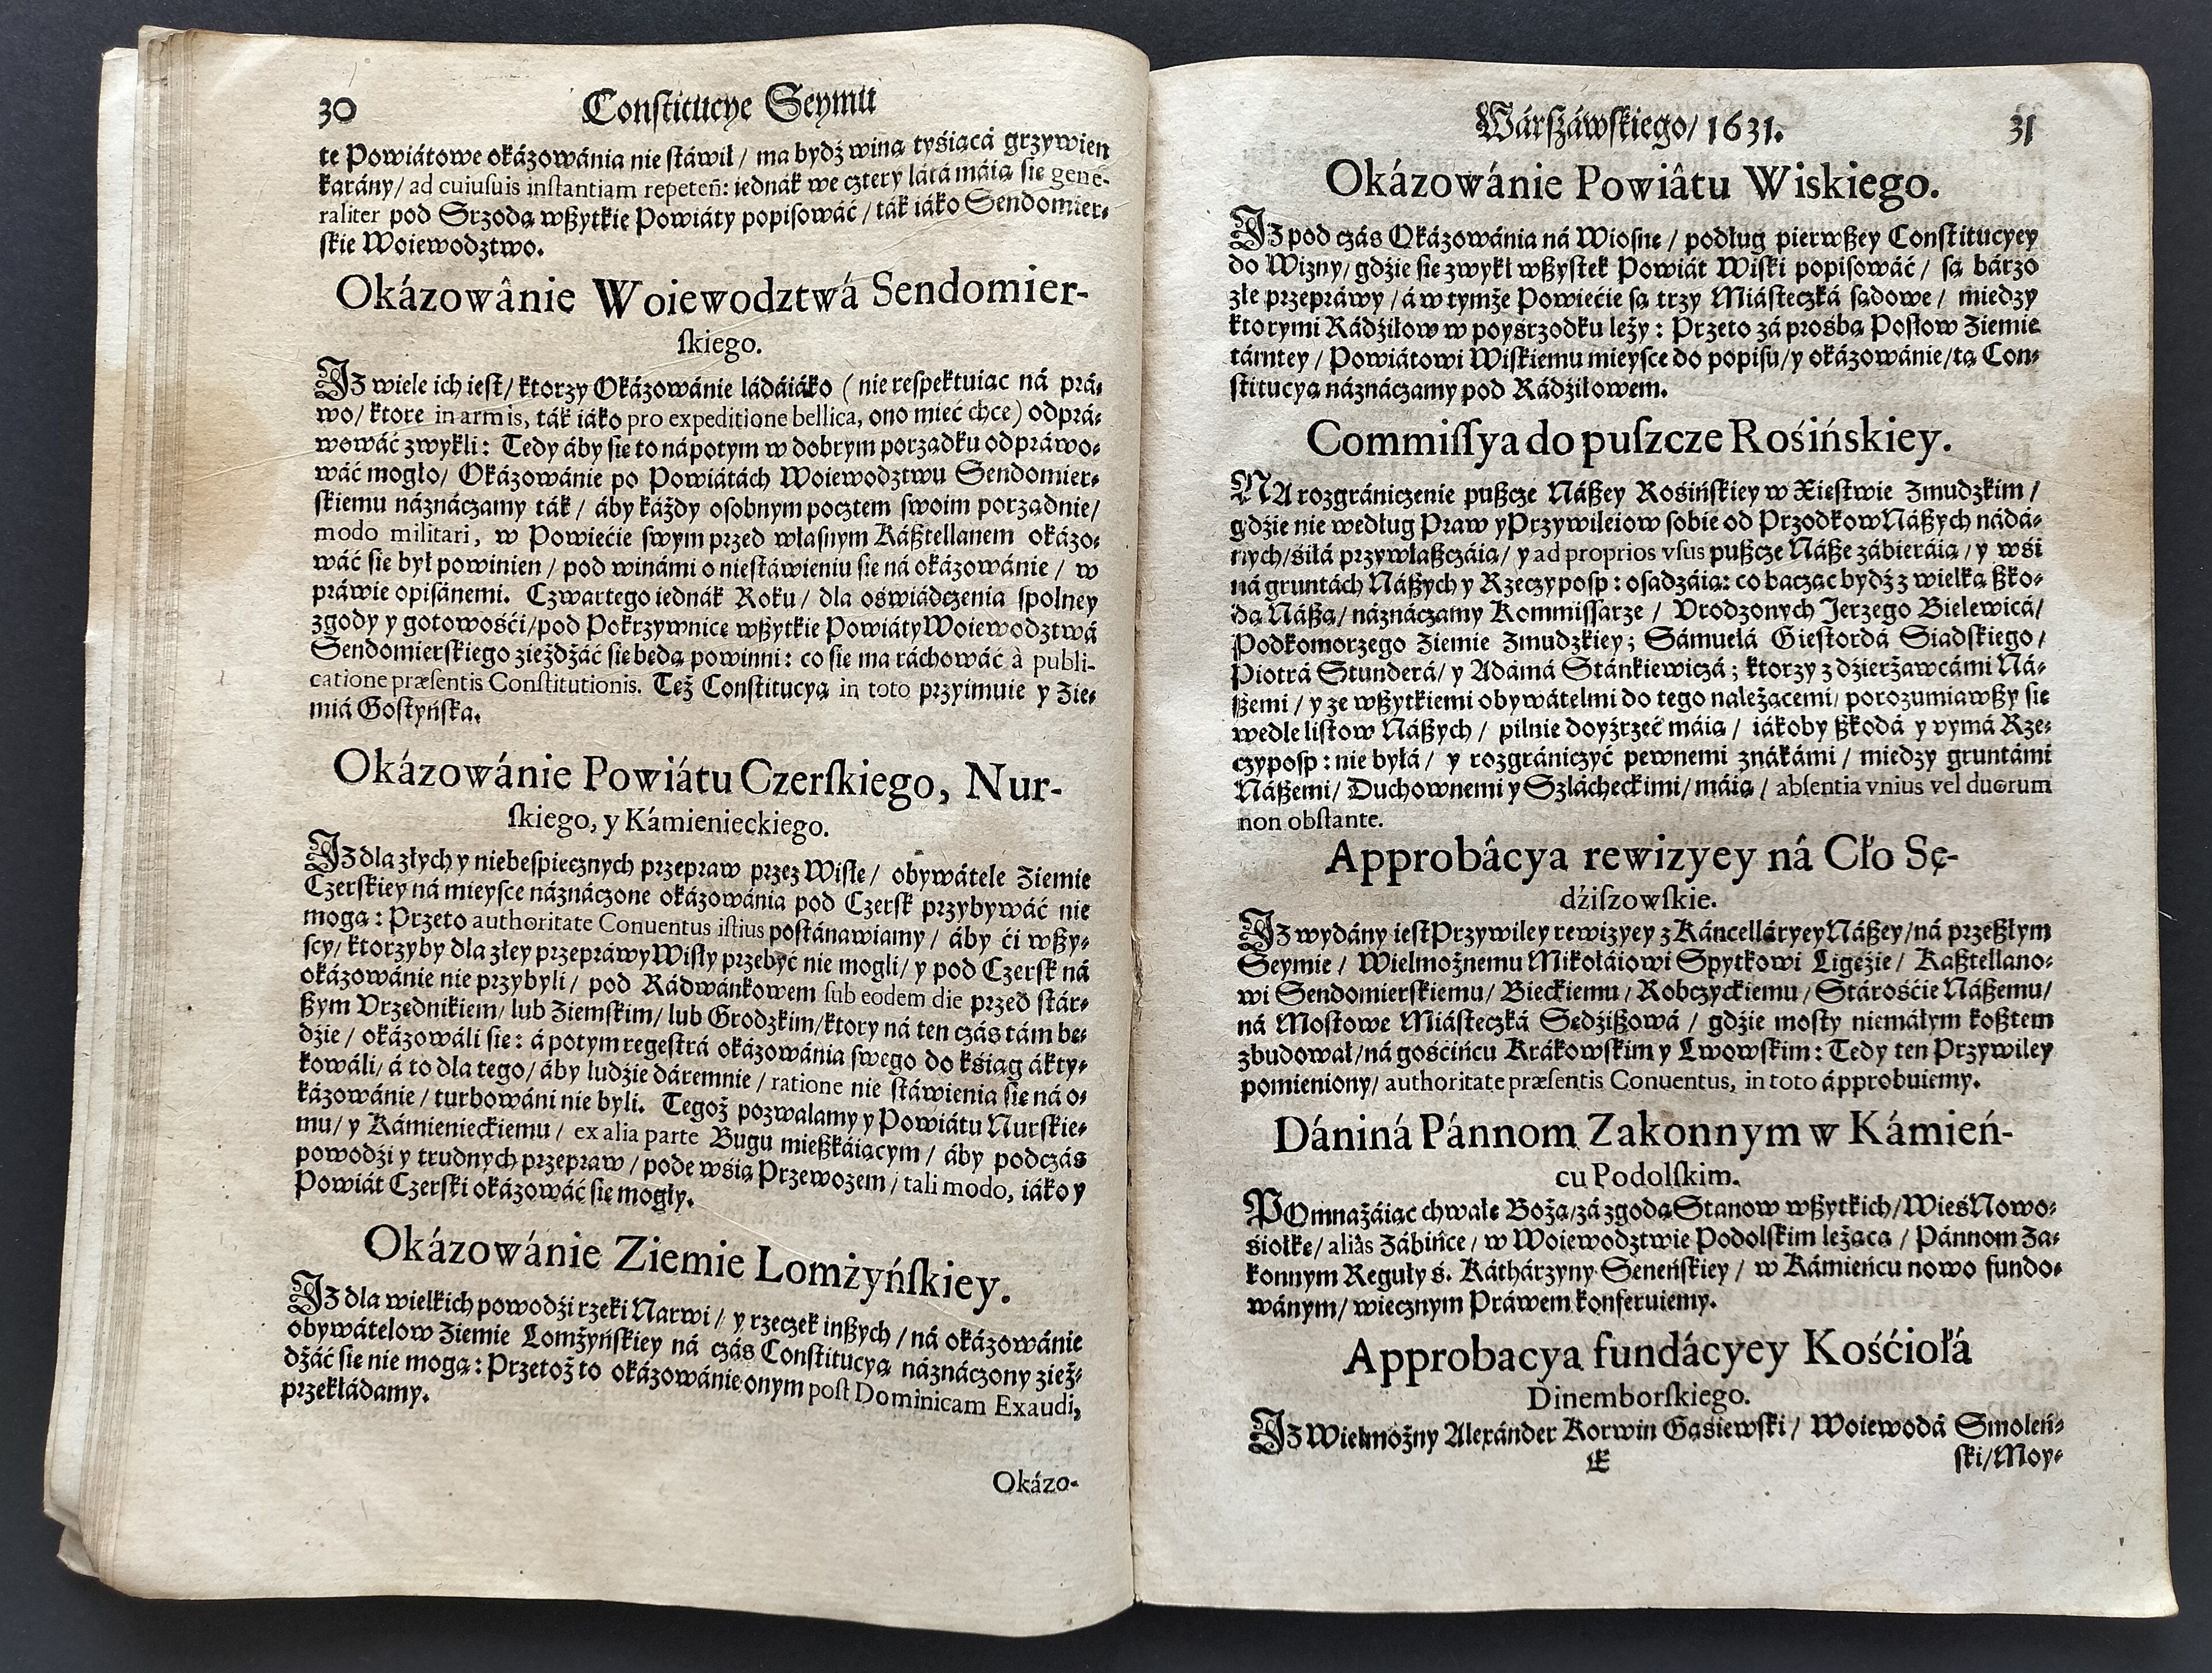 30 Constitucye Seymu
te Powiátowe okázowánia nie stáwił / ma bydź winą tyśiącá grzywien
karány/ ad cuiusuis instantiam repeteñ: iednák we cztery látá máią się gene-
raliter pod Srzodą wßytkie Powiáty popisowáć / ták iáko Sendomier-
skie Woiewodztwo.
Okázowânie Woiewodztwá Sendomier-
skiego.
Iż wiele ich iest/ ktorzy Okázowánie ládáiáko (nie respektuiąc ná prá-
wo/ ktore in armis, ták iáko pro expeditione bellica, ono mieć chce) odprá-
wowáć zwykli: Tedy áby się to nápotym w dobrym porządku odpráwo-
wáć mogło/ Okázowánie po Powiátách Woiewodztwu Sendomier-
skiemu náznáczamy ták / áby káżdy osobnym pocztem swoim porządnie/
modo militari, w Powiećie swym przed własnym Káßtellanem okázo-
wáć się był powinien / pod winámi o niestáwieniu się ná okázowánie / w
práwie opisánemi. Czwartego iednák Roku / dla oświádczenia spolney
zgody y gotowośći/pod Pokrzywnicę wßytkie Powiáty Woiewodztwá
Sendomierskiego zieżdżáć się będą powinni: co się ma ráchowáć à publi-
catione præsentis Constitutionis. Też Constitucyą in toto przyimuie y Zie-
miá Gostyńska.
Okázowánie Powiátu Czerskiego, Nur-
skiego, y Kámienieckiego.
Iż dla złych y niebespiecznych przepraw przez Wisłę/ obywátele Ziemie
Czerskiey ná mieysce náznáczone okázowánia pod Czersk przybywáć nie
mogą: Przeto authoritate Conuentus istius postánawiamy / áby ći wßy-
scy/ ktorzyby dla złey przepráwy Wisły przebyć nie mogli/ y pod Czersk ná
okázowánie nie przybyli / pod Rádwánkowem sub eodem die przed stár-
ßym Vrzędnikiem/ lub Ziemskim/ lub Grodzkim/ktory ná ten czás tám bę-
dźie / okázowáli się: á potym regestrá okázowánia swego do kśiąg ákty-
kowáli/ á to dla tego/ áby ludźie dáremnie / ratione nie stáwienia się ná o-
kázowánie / turbowáni nie byli. Tegoż pozwalamy y Powiátu Nurskie-
mu/ y Kámienieckiemu / ex alia parte Bugu mießkáiącym / áby podczás
powodźi y trudnych przepraw / pode wśią Przewozem / tali modo, iáko y
Powiát Czerski okázowáć się mogły.
Okázowánie Ziemie Lomżyńskiey.
Iż dla wielkich powodźi rzeki Narwi / y rzeczek inßych / ná okázowánie
obywátelow Ziemie Lomżyńskiey ná czás Constitucyą náznáczony zież-
dżáć się nie mogą: Przetoż to okázowánie onym post Dominicam Exaudi,
przekłádamy.
Okázo-
Wárßáwskiego/ 1631. 31
Okázowánie Powiâtu Wiskiego.
Iż pod czás Okázowánia ná Wiosnę / podług pierwßey Constitucyey
do Wizny/ gdźie się zwykł wßystek Powiát Wiski popisowáć / są bárzo
złe przepráwy / á w tymże Powiećie są trzy Miásteczká sądowe / miedzy
ktorymi Rádźiłow w poyśrzodku leży: Przeto zá prośbą Posłow Ziemie
támtey / Powiátowi Wiskiemu mieysce do popisu/ y okázowánie/ tą Con-
stitucyą náznáczamy pod Rádźiłowem.
Commissya do puszcze Rośińskiey.
NA rozgrániczenie pußcze Náßey Rośińskiey w Xięstwie Zmudzkim /
gdźie nie według Praw y Przywileiow sobie od Przodkow Náßych nádá-
nych/śiłá przywłaßczáią/ y ad proprios vsus pußcze Náße zábieráią / y wśi
ná gruntách Náßych y Rzeczyposp: osadzáią: co bacząc bydź z wielką ßko-
dą Náßą/ náznáczamy Kommissarze / Vrodzonych Jerzego Bielewicá/
Podkomorzego Ziemie Zmudzkiey; Sámuelá Giestordá Siadskiego /
Piotrá Stunderá/ y Adámá Stánkiewiczá; ktorzy z dźierżawcámi Ná-
ßemi / y ze wßytkiemi obywátelmi do tego należącemi/ porozumiawßy się
wedle listow Náßych / pilnie doyźrzeć máią / iákoby ßkodá y vymá Rze-
czyposp: nie byłá/ y rozgrániczyć pewnemi znákámi / miedzy gruntámi
Náßemi/ Duchownemi y Szlácheckimi/ máią / absentia vnius vel duorum
non obstante.
Approbâcya rewizyey nâ Cło Sę-
dźiszowskie.
Iż wydány iest Przywiley rewizyey z Káncelláryey Náßey/ná przeßłym
Seymie / Wielmożnemu Mikołáiowi Spytkowi Ligęźie / Kaßtellano-
wi Sendomierskiemu/ Bieckiemu / Robczyckiemu / Stárośćie Náßemu/
ná Mostowe Miásteczká Sędźißowá / gdźie mosty niemáłym koßtem
zbudował/ná gośćińcu Krákowskim y Lwowskim: Tedy ten Przywiley
pomieniony/ authoritate præsentis Conuentus, in toto ápprobuiemy.
Dániná Pánnom Zakonnym w Kámień-
cu Podolskim.
POmnażáiąc chwałę Bożą/zá zgodą Stanow wßytkich/Wieś Nowo-
śiołkę/ aliàs Zábińce / w Woiewodztwie Podolskim leżącą / Pánnom Za-
konnym Reguły ś. Káthárzyny Seneńskiey / w Kámieńcu nowo fundo-
wánym/ wiecznym Práwem konferuiemy.
Approbacya fundácyey Kośćiołá
Dinemborskiego.
Iż Wielmożny Alexánder Korwin Gąsiewski/ Woiewodá Smoleń-
E ski/Moy-